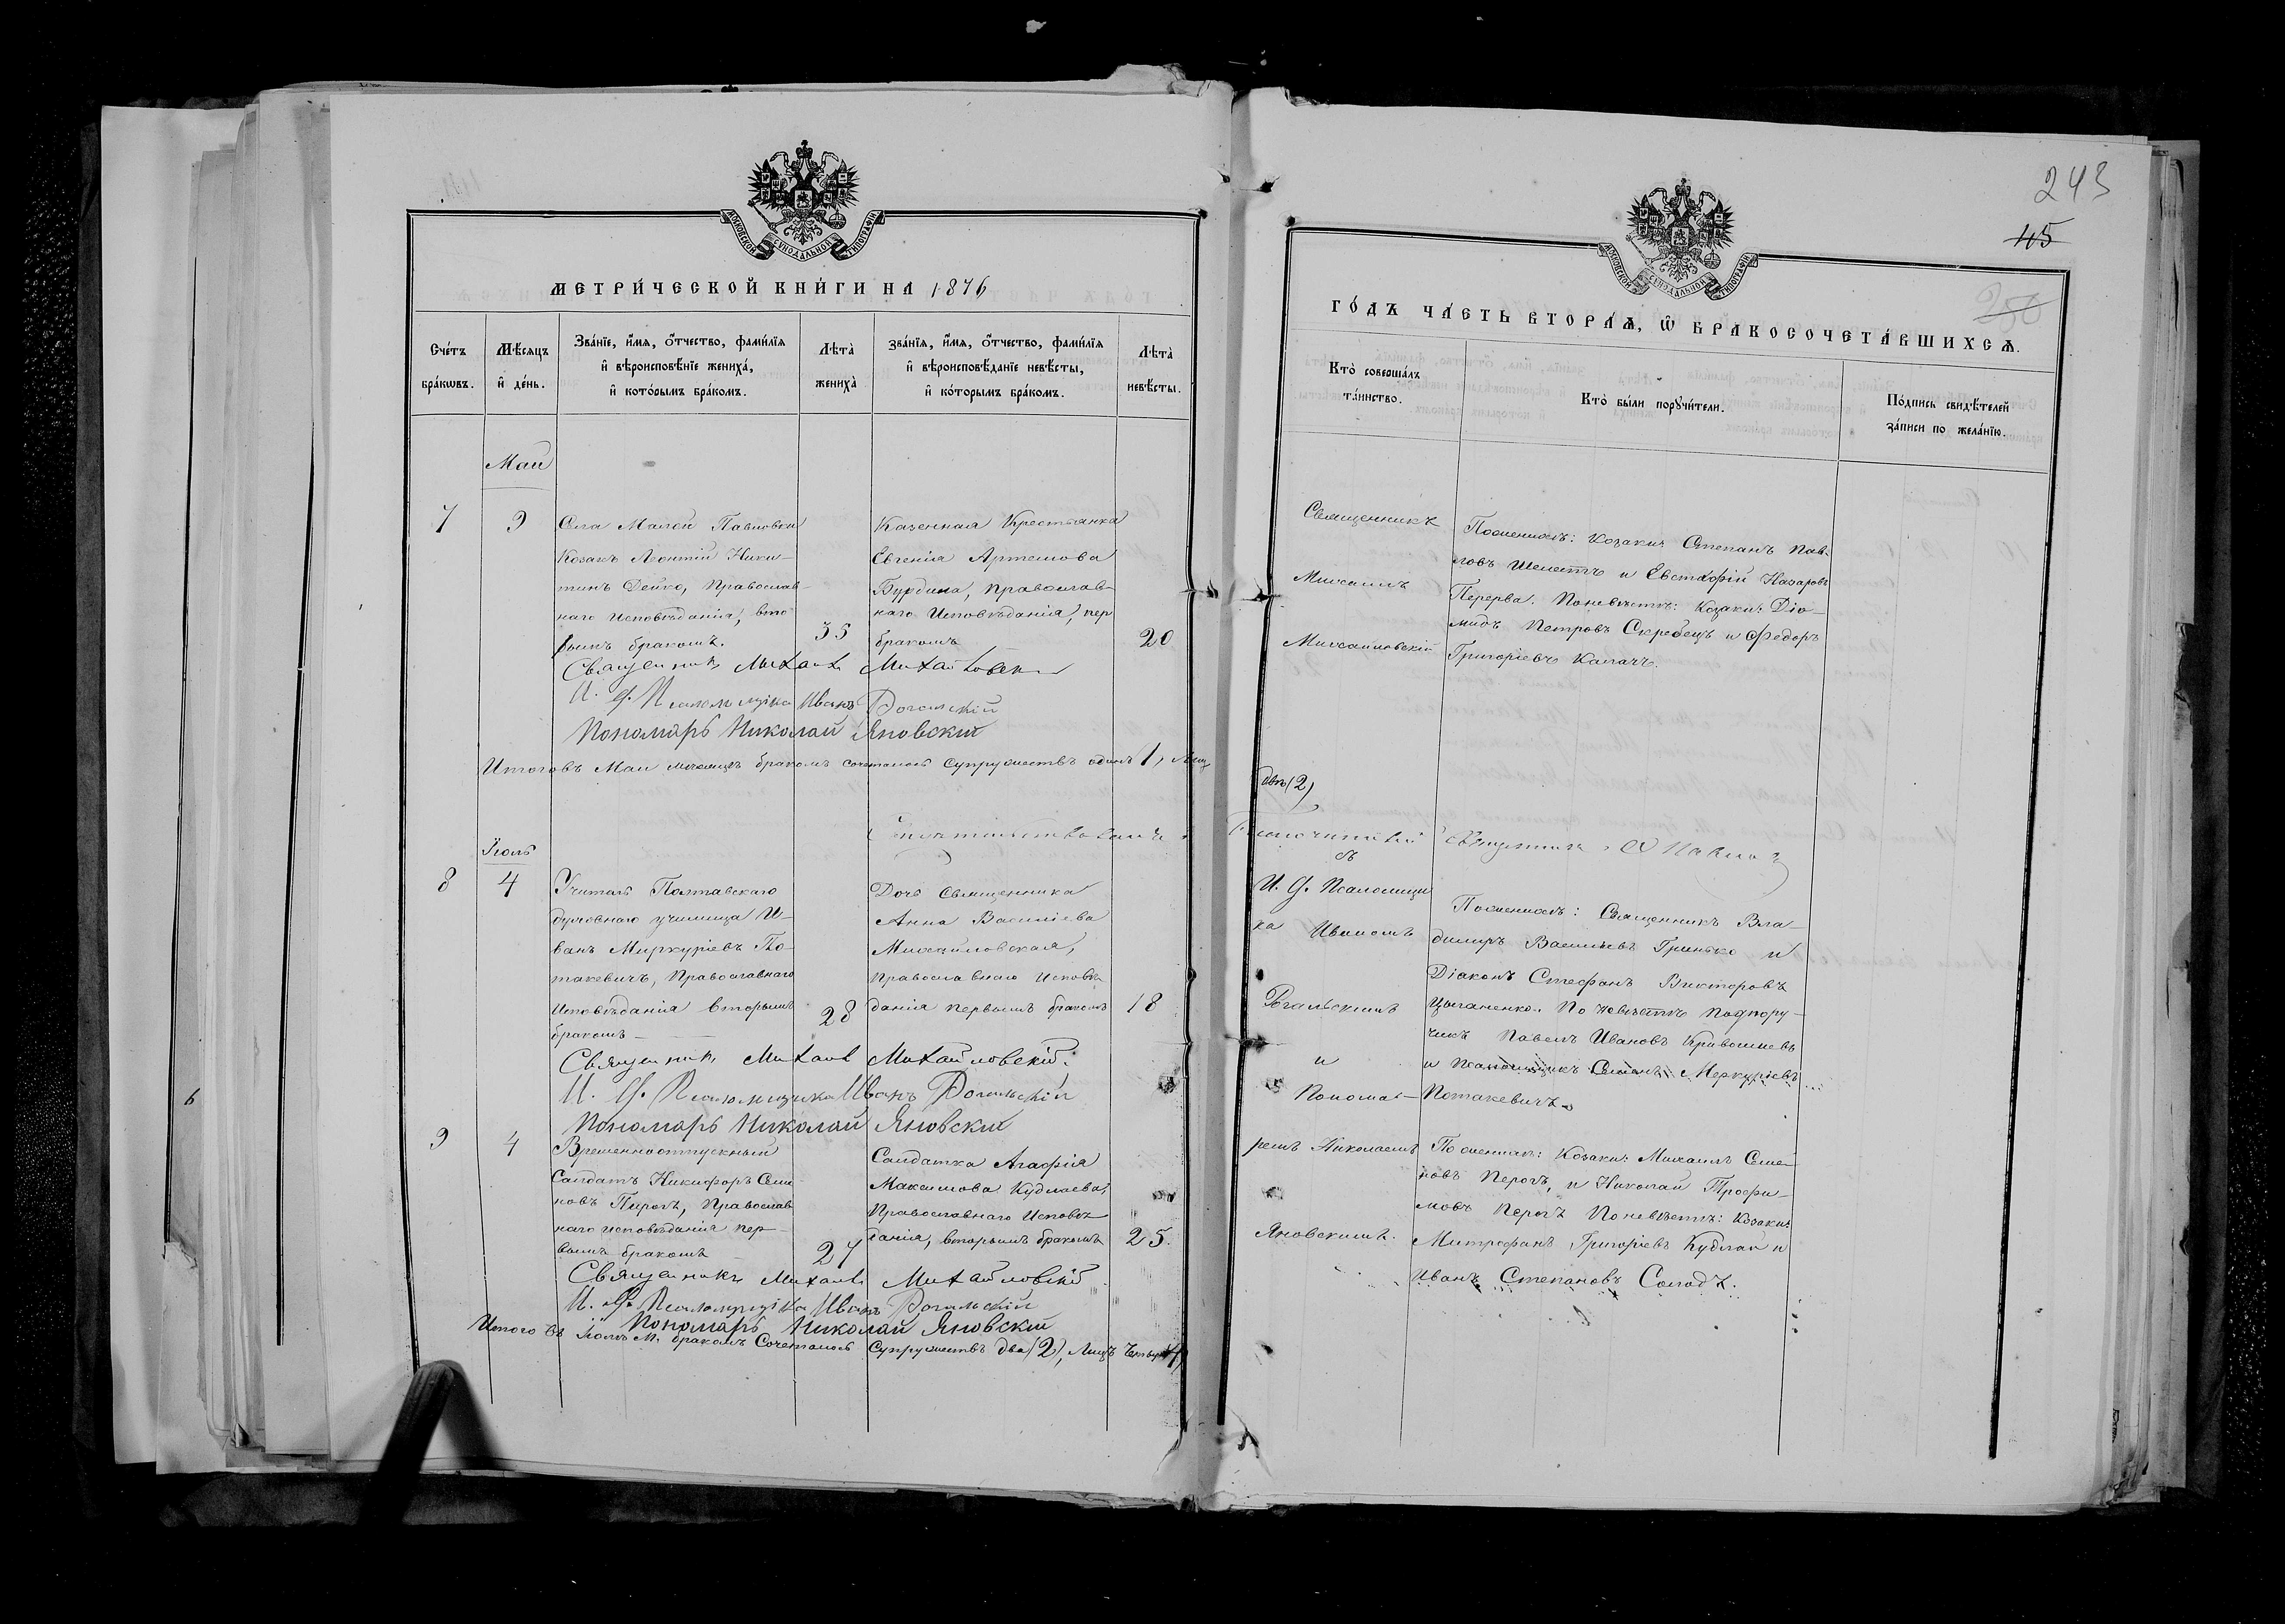 243
45
250
МОСКОВСКОЙ СѴНОДАЛЬНОЙ ТИПОГРАФІИ
МЕТРИ́ЧЕСКОЙ КНИ́ГИ НА 1876
Сче́тъ бра́кѡвъ.
Мѣ́сѧцъ и҆ де́нь.
Зва́нїе, и҆́мѧ, ѻ҆́тчество, фами́лїѧ
и҆ вѣроисповѣ́нїе жениха̀,
и҆ кото́рымъ бра́комъ.
Лѣ́та̀ жениха̀
зва́нїѧ, и҆́мѧ, ѻ҆́тчество, фами́лїѧ
и҆ вѣроисповѣ́данїе невѣ́сты,
и҆ кото́рымъ бра́комъ.
Лѣ́та̀ невѣ́сты.
Маи
7
9
Села Малой Павловки
Козакъ Леонтій Ники-
тинъ Дейко, Православ-
наго исповѣданія, вто-
рымъ бракомъ.
35
Казенная Крестьянка
Евгенія Артемова
Бурдина, православ-
наго исповѣданія, пер
бракомъ
20
Священникъ Михаилъ Михайловскій
И. д. Псаломщика Иванъ Рогальскій
Пономарь Николай Яновскій
Итого въ Маи мѣсяцѣ бракомъ сочеталось супружествъ одинъ 1, лиц
Іюль
8
4
Учитель Полтавскаго
духовнаго училища И-
ванъ Миркуріевъ По-
такевичъ, Православнаго
исповѣданія вторымъ
бракомъ
28
Дочь Священника
Анна Василіева
Михайловская,
православнаго исповѣ-
данія первымъ бракомъ
18
Священникъ Михаилъ Михайловскій.
И. д. Псаломщика Иванъ Рогальскій
Пономарь Николай Яновскій
9
4
Временноотпускный
Солдатъ Никифоръ Семе
новъ Пирогъ, Православ
наго исповѣданія пер-
вымъ бракомъ
27
Солдатка Агафія
Максимова Кудлаева,
Православнаго Исповѣ
данія, вторымъ бракомъ
25.
Священникъ Михаилъ Михайловскій
И. д. Псаломщика Иванъ Рогальскій
Пономарь Николай Яновскій
Итого въ Іюлѣ М. бракомъ Сочеталось Супружествъ два (2), лицъ четыре (4)
МОСКОВСКОЙ СѴНОДАЛЬНОЙ ТИПОГРАФІИ
ГО́ДЪ ЧА́СТЬ ВТОРА́Ѧ, Ѡ҆ БРАКОСОЧЕТА́ВШИХСѦ.
Кто̀ соверша́лъ
та́инство.
Кто̀ бы́ли порꙋчи́тели.
По́дпись свидѣ́телей
за́писи по жела́нїю.
Священникъ
Михаилъ
Михайловскій
По женихѣ: козаки Степанъ Пав-
ловъ Шелестъ и Евстафій Назаровъ
Перерва. По невѣстѣ: Козаки: Діо-
мидъ Петровъ Скребецъ и Федоръ
Григоріевъ Калачъ.
двѣ (2)
съ
И. д. Псаломщи
ка Иваномъ
Рогальскимъ
и
Понома-
ремъ Николаемъ
Яновскимъ.
По женихѣ: Священникъ Вла-
димиръ Васильевъ Гринько и
Діаконъ Стефанъ Викторовъ
Цыганенко. По невѣстѣ подпору-
чикъ Павелъ Ивановъ Кривошеевъ
и Псаломщикъ Семенъ Меркуріевъ
Потакевичъ.
По женихѣ: Козаки: Михаилъ Семе
новъ Перогъ, и Николай Трофи-
мовъ Перогъ По невѣстѣ: Козаки
Митрофанъ Григоріевъ Кудлай и
Иванъ Степановъ Солодъ.
6